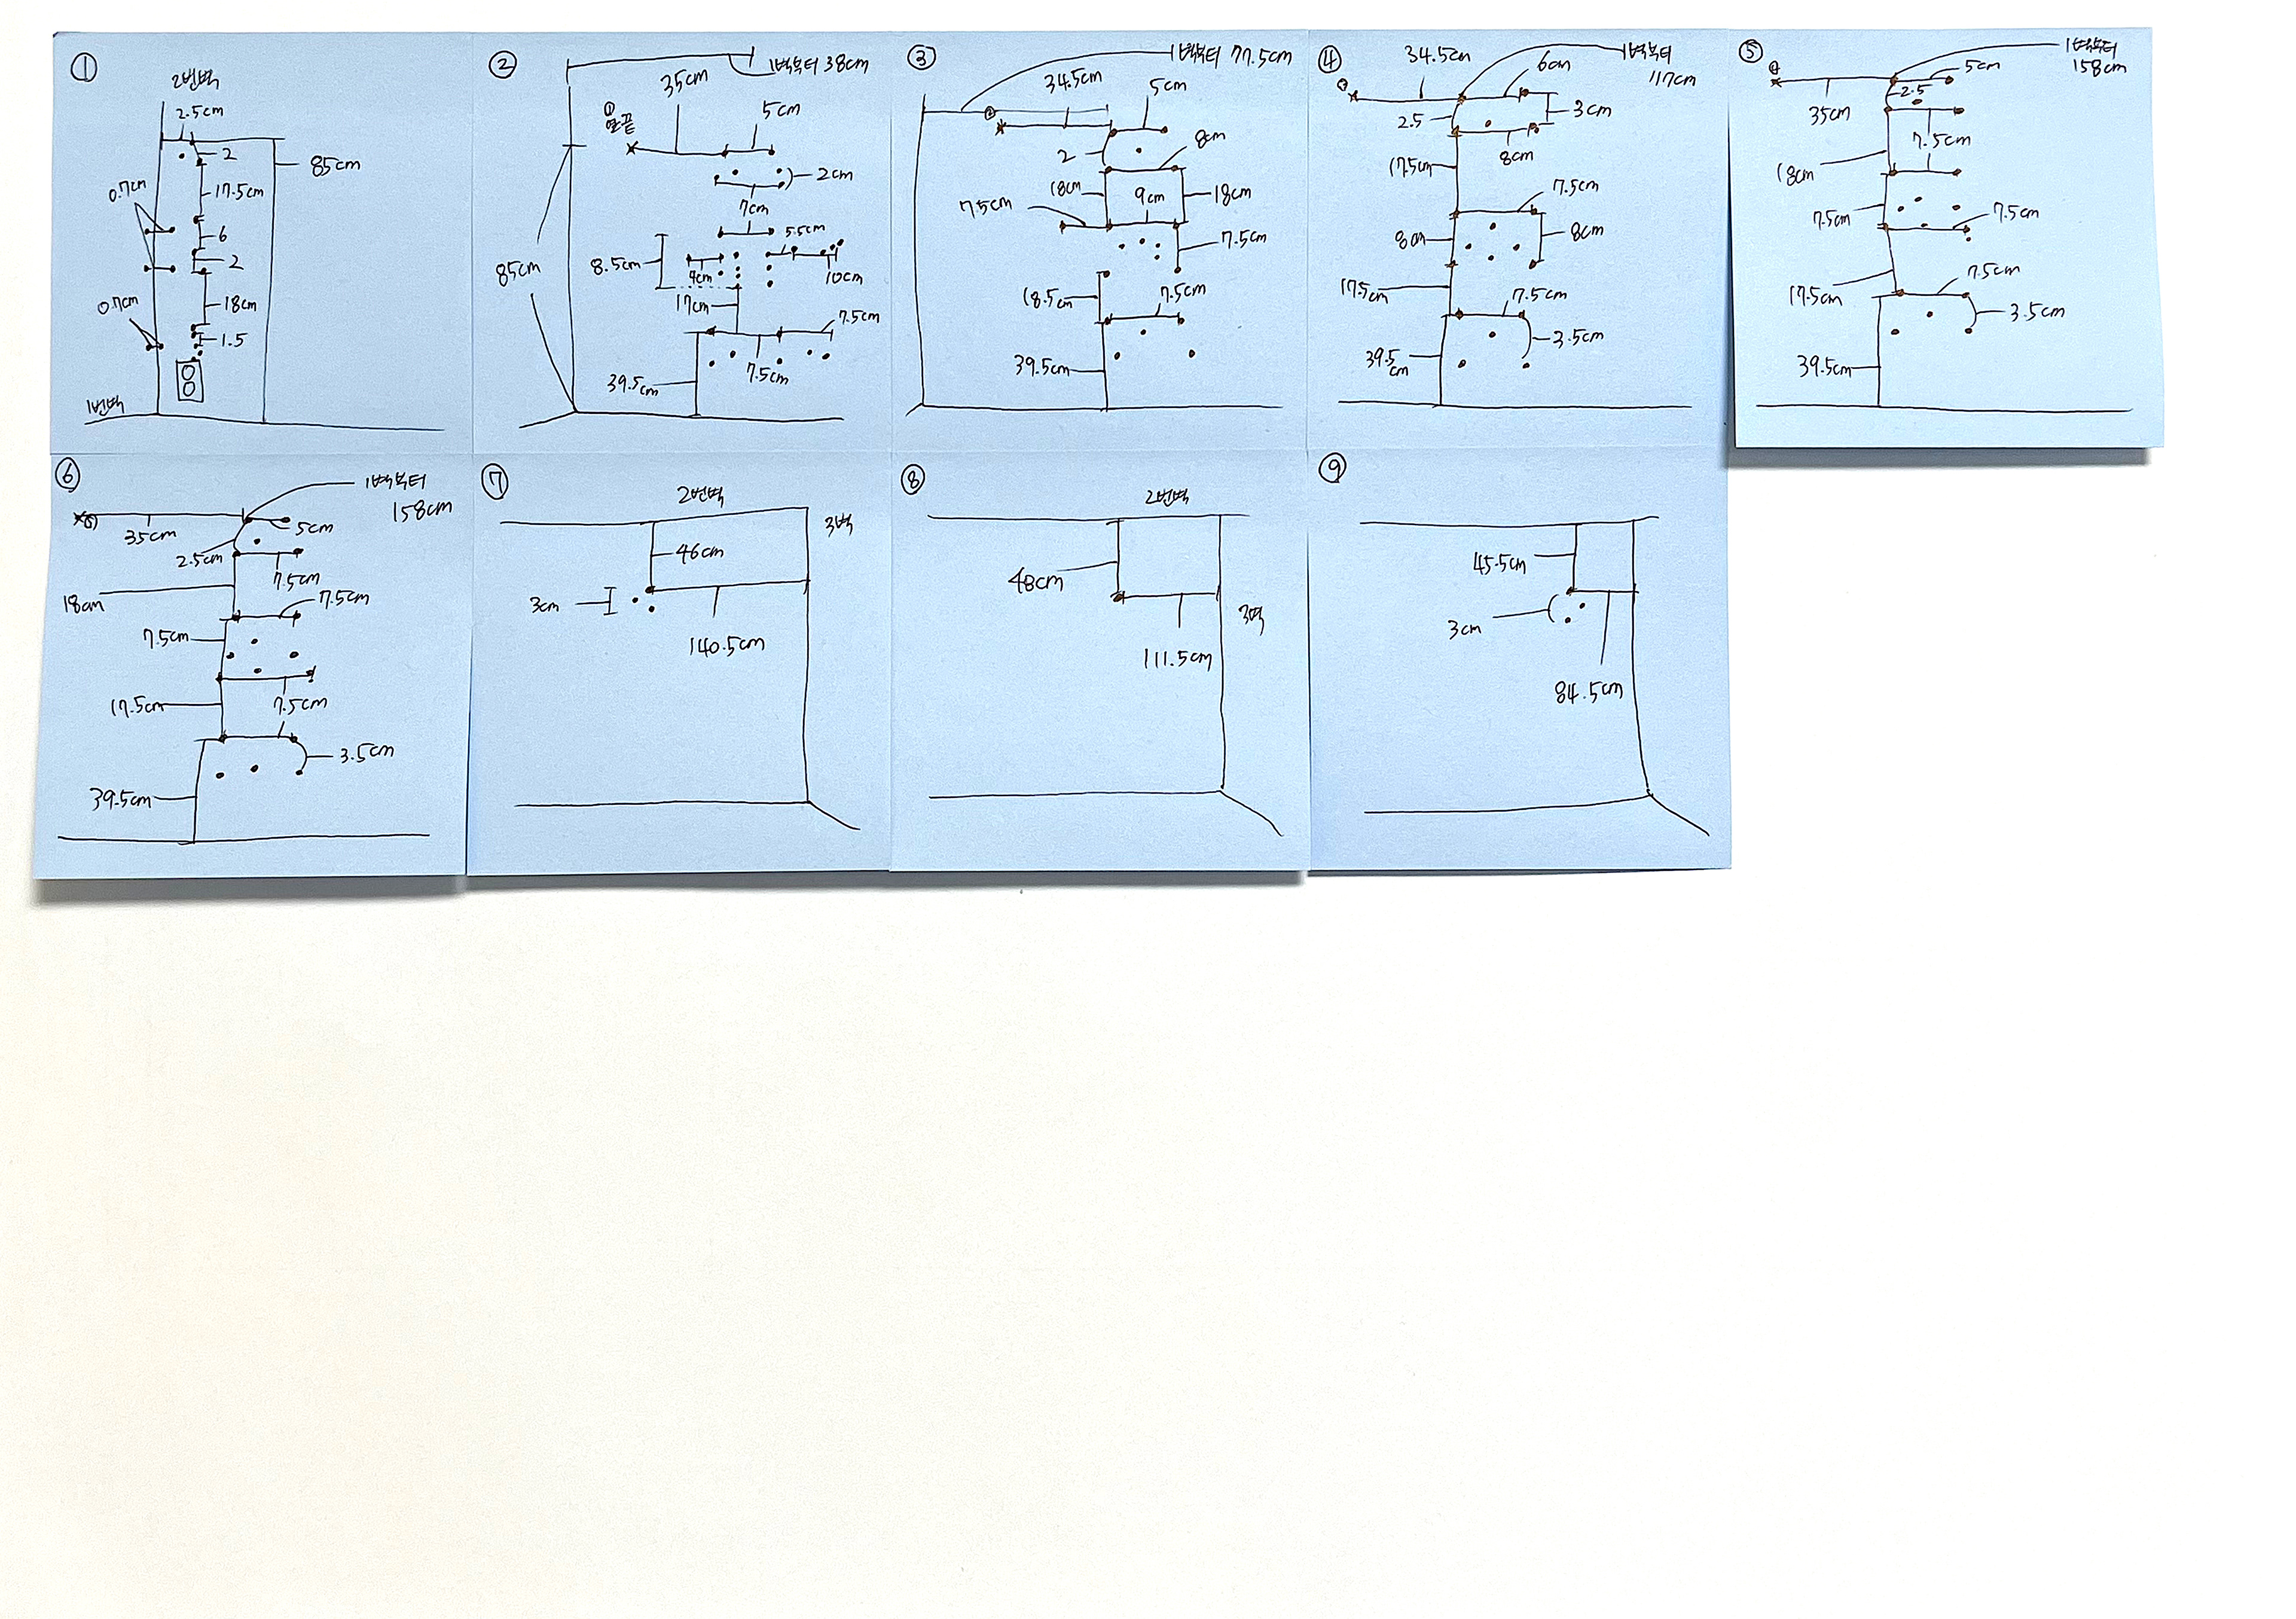 ①
2번벽
2.5cm
2
85cm
0.7cm
17.5cm
6
2
0.7cm
18cm
1.5
1번벽
②
1벽부터 38cm
35cm
①
끝
5cm
2cm
7cm
5.5cm
8.5cm
4cm
10cm
85cm
17cm
7.5cm
7.5cm
39.5cm
③
1벽부터 77.5cm
34.5cm
5cm
②
8cm
2
18cm
9cm
18cm
7.5cm
7.5cm
18.5cm
7.5cm
39.5cm
④
34.5cm
6cm
1벽부터
117cm
2.5
3cm
17.5cm
8cm
7.5cm
8cm
8cm
17.5cm
7.5cm
3.5cm
39.5
cm
⑤
1벽부터
158cm
④
5cm
35cm
2.5
7.5cm
18cm
7.5cm
7.5cm
17.5cm
7.5cm
3.5cm
39.5cm
⑥
1벽부터
158cm
35cm
5cm
2.5cm
7.5cm
18cm
7.5cm
7.5cm
17.5cm
7.5cm
3.5cm
39.5cm
⑦
2번벽
3벽
46cm
3cm
140.5cm
⑧
2번벽
48cm
3벽
111.5cm
⑨
45.5cm
3cm
84.5cm